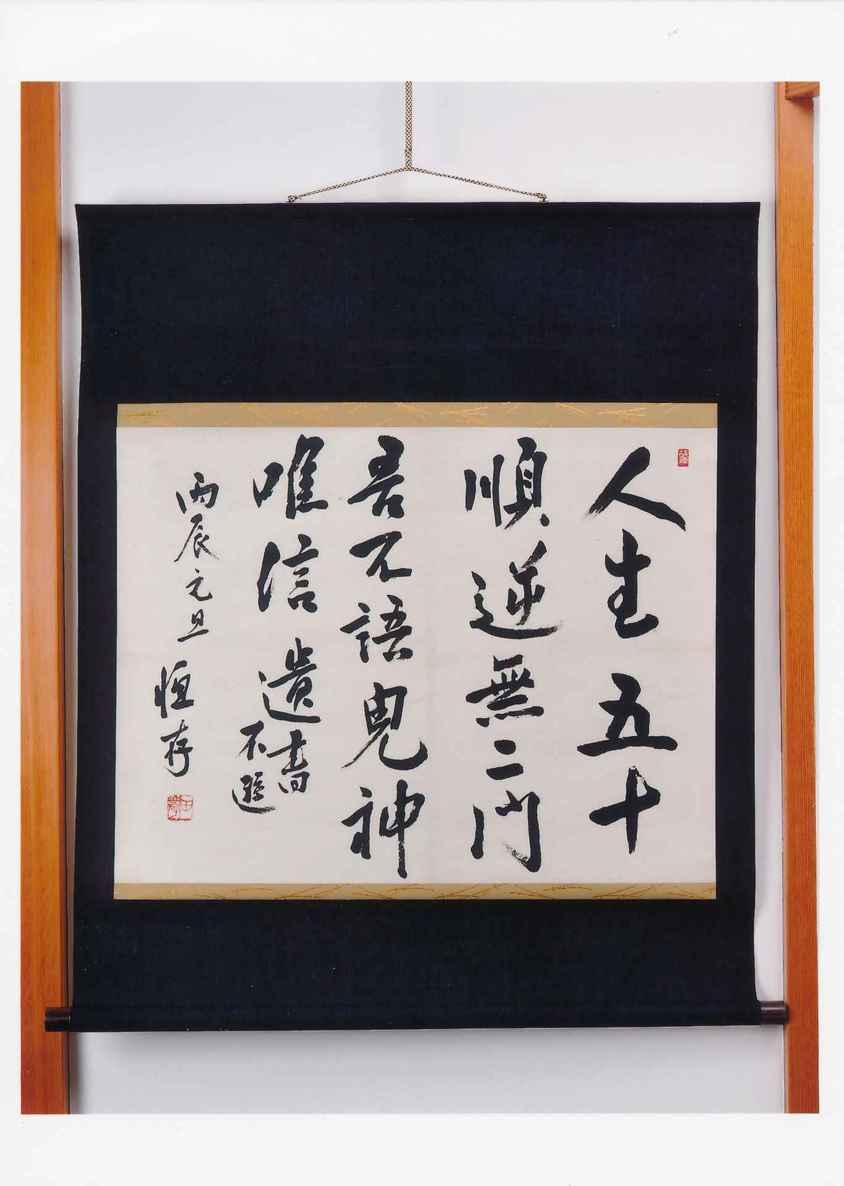 人生五十
順逆無二門
吾不語鬼神
唯信遺書
不
丙辰元旦 恆存